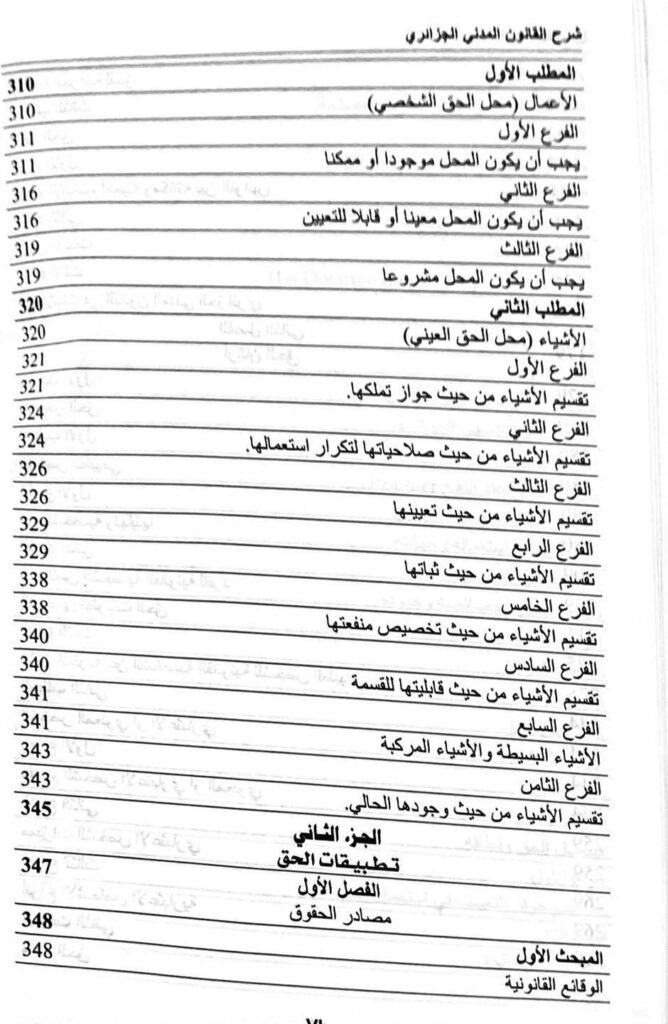 شرح القانون المدني الجزائري
المطلب الأول 310
الأعمال (محل الحق الشخصي) 310
الفرع الأول 311
يجب أن يكون المحل موجودا أو ممكنا 311
الفرع الثاني 316
يجب أن يكون المحل معينا أو قابلا للتعيين 316
الفرع الثالث 319
يجب أن يكون المحل مشروعا 319
المطلب الثاني 320
الأشياء (محل الحق العيني) 320
الفرع الأول 321
تقسيم الأشياء من حيث جواز تملكها. 321
الفرع الثاني 324
تقسيم الأشياء من حيث صلاحياتها لتكرار استعمالها. 324
الفرع الثالث 326
تقسيم الأشياء من حيث تعيينها 326
الفرع الرابع 329
تقسيم الأشياء من حيث ثباتها 329
الفرع الخامس 338
تقسيم الأشياء من حيث تخصيص منفعتها 338
الفرع السادس 340
تقسيم الأشياء من حيث قابليتها للقسمة 340
الفرع السابع 341
الأشياء البسيطة والأشياء المركبة 341
الفرع الثامن 343
تقسيم الأشياء من حيث وجودها الحالي. 343
الجزء الثاني 345
تطبيقات الحق
الفصل الأول 347
مصادر الحقوق
المبحث الأول 348
الوقائع القانونية 348